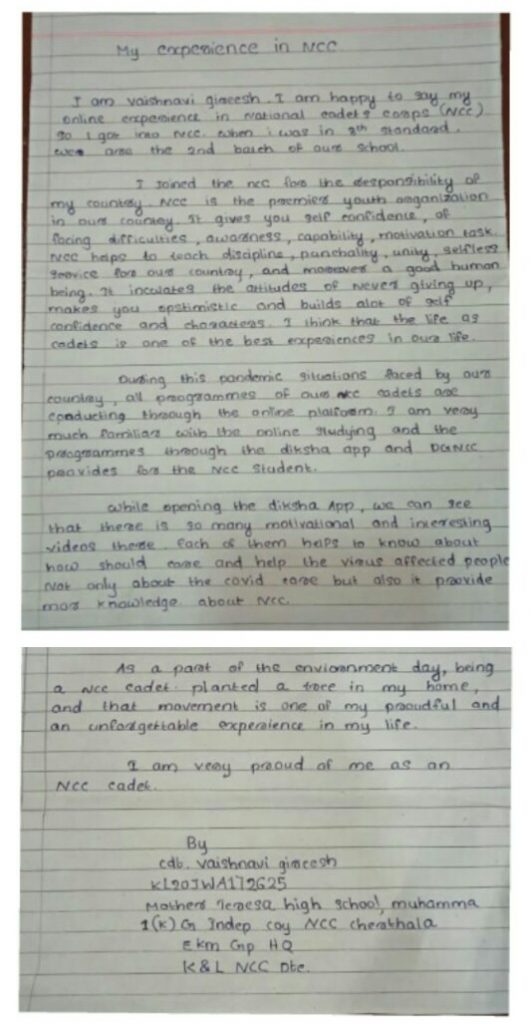 My experience in NCC
I am vaishnavi gireesh. I am happy to say my
online experience in National cadets corps (NCC)
so I got into NCC. when i was in 8th standard.
we are the 2nd batch of our school.
I joined the ncc for the responsibility of
my country. NCC is the premier youth organization
in our country. It gives you self confidence, of
facing difficulties, awarness, capability, motivation task.
NCC helps to teach discipline, punchality, unity, selfless
service for our country, and moreover a good human
being. It inculates the attitudes of never giving up,
makes you opstimistic and builds alot of self
confidence and characters. I think that the life as
cadets is one of the best experiences in our life.
During this pandemic situations faced by our
country, all programmes of our ncc cadets are
conducting through the online platform. I am very
much familiar with the online studying and the
programmes through the diksha app and DGNCC
provides for the NCC Student.
while opening the diksha App, we can see
that there is so many motivational and interesting
videos there. Each of them helps to know about
how should care and help the virus affected people
Not only about the covid care but also it proovide
more knowledge about NCC.
As a part of the envioronment day, being
a NCC cadet. planted a tree in my home,
and that movement is one of my proudful and
an unforgettable experience in my life.
I am very proud of me as an
NCC cadet.
By
cdt. vaishnavi gireesh
KL20JWA172625
Mother Teresa high school, muhamma
1(K) G Indep coy NCC cherthala
Ekm Gp HQ
K&L NCC Dte.